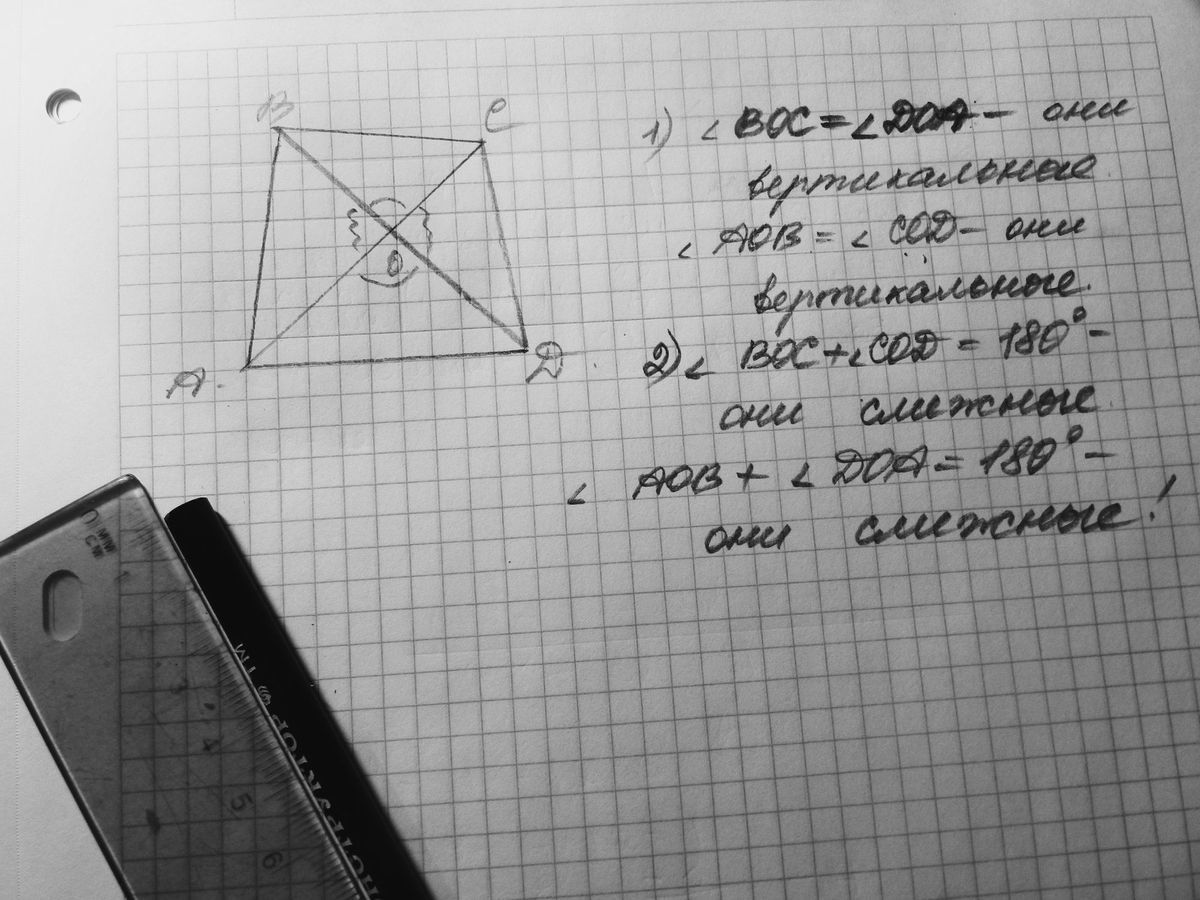 B
C
O
A
D
1) ∠ BOC = ∠ DOA - они
вертикальные
∠ AOB = ∠ COD - они
вертикальные.
2) ∠ BOC + ∠ COD = 180° -
они смежные
∠ AOB + ∠ DOA = 180° -
они смежные!
4
5
6